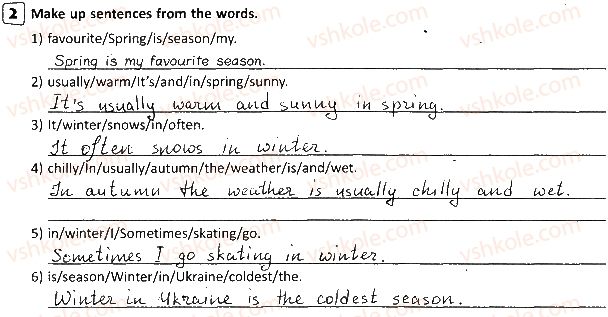 2 Make up sentences from the words.
1) favourite/Spring/is/season/my.
Spring is my favourite season.
2) usually/warm/It's/and/in/spring/sunny.
It's usually warm and sunny in spring.
3) It/winter/snows/in/often.
It often snows in winter.
4) chilly/In/usually/autumn/the/weather/is/and/wet.
In autumn the weather is usually chilly and wet.
5) in/winter/I/Sometimes/skating/go.
Sometimes I go skating in winter.
6) is/season/Winter/in/Ukraine/coldest/the.
Winter in Ukraine is the coldest season.